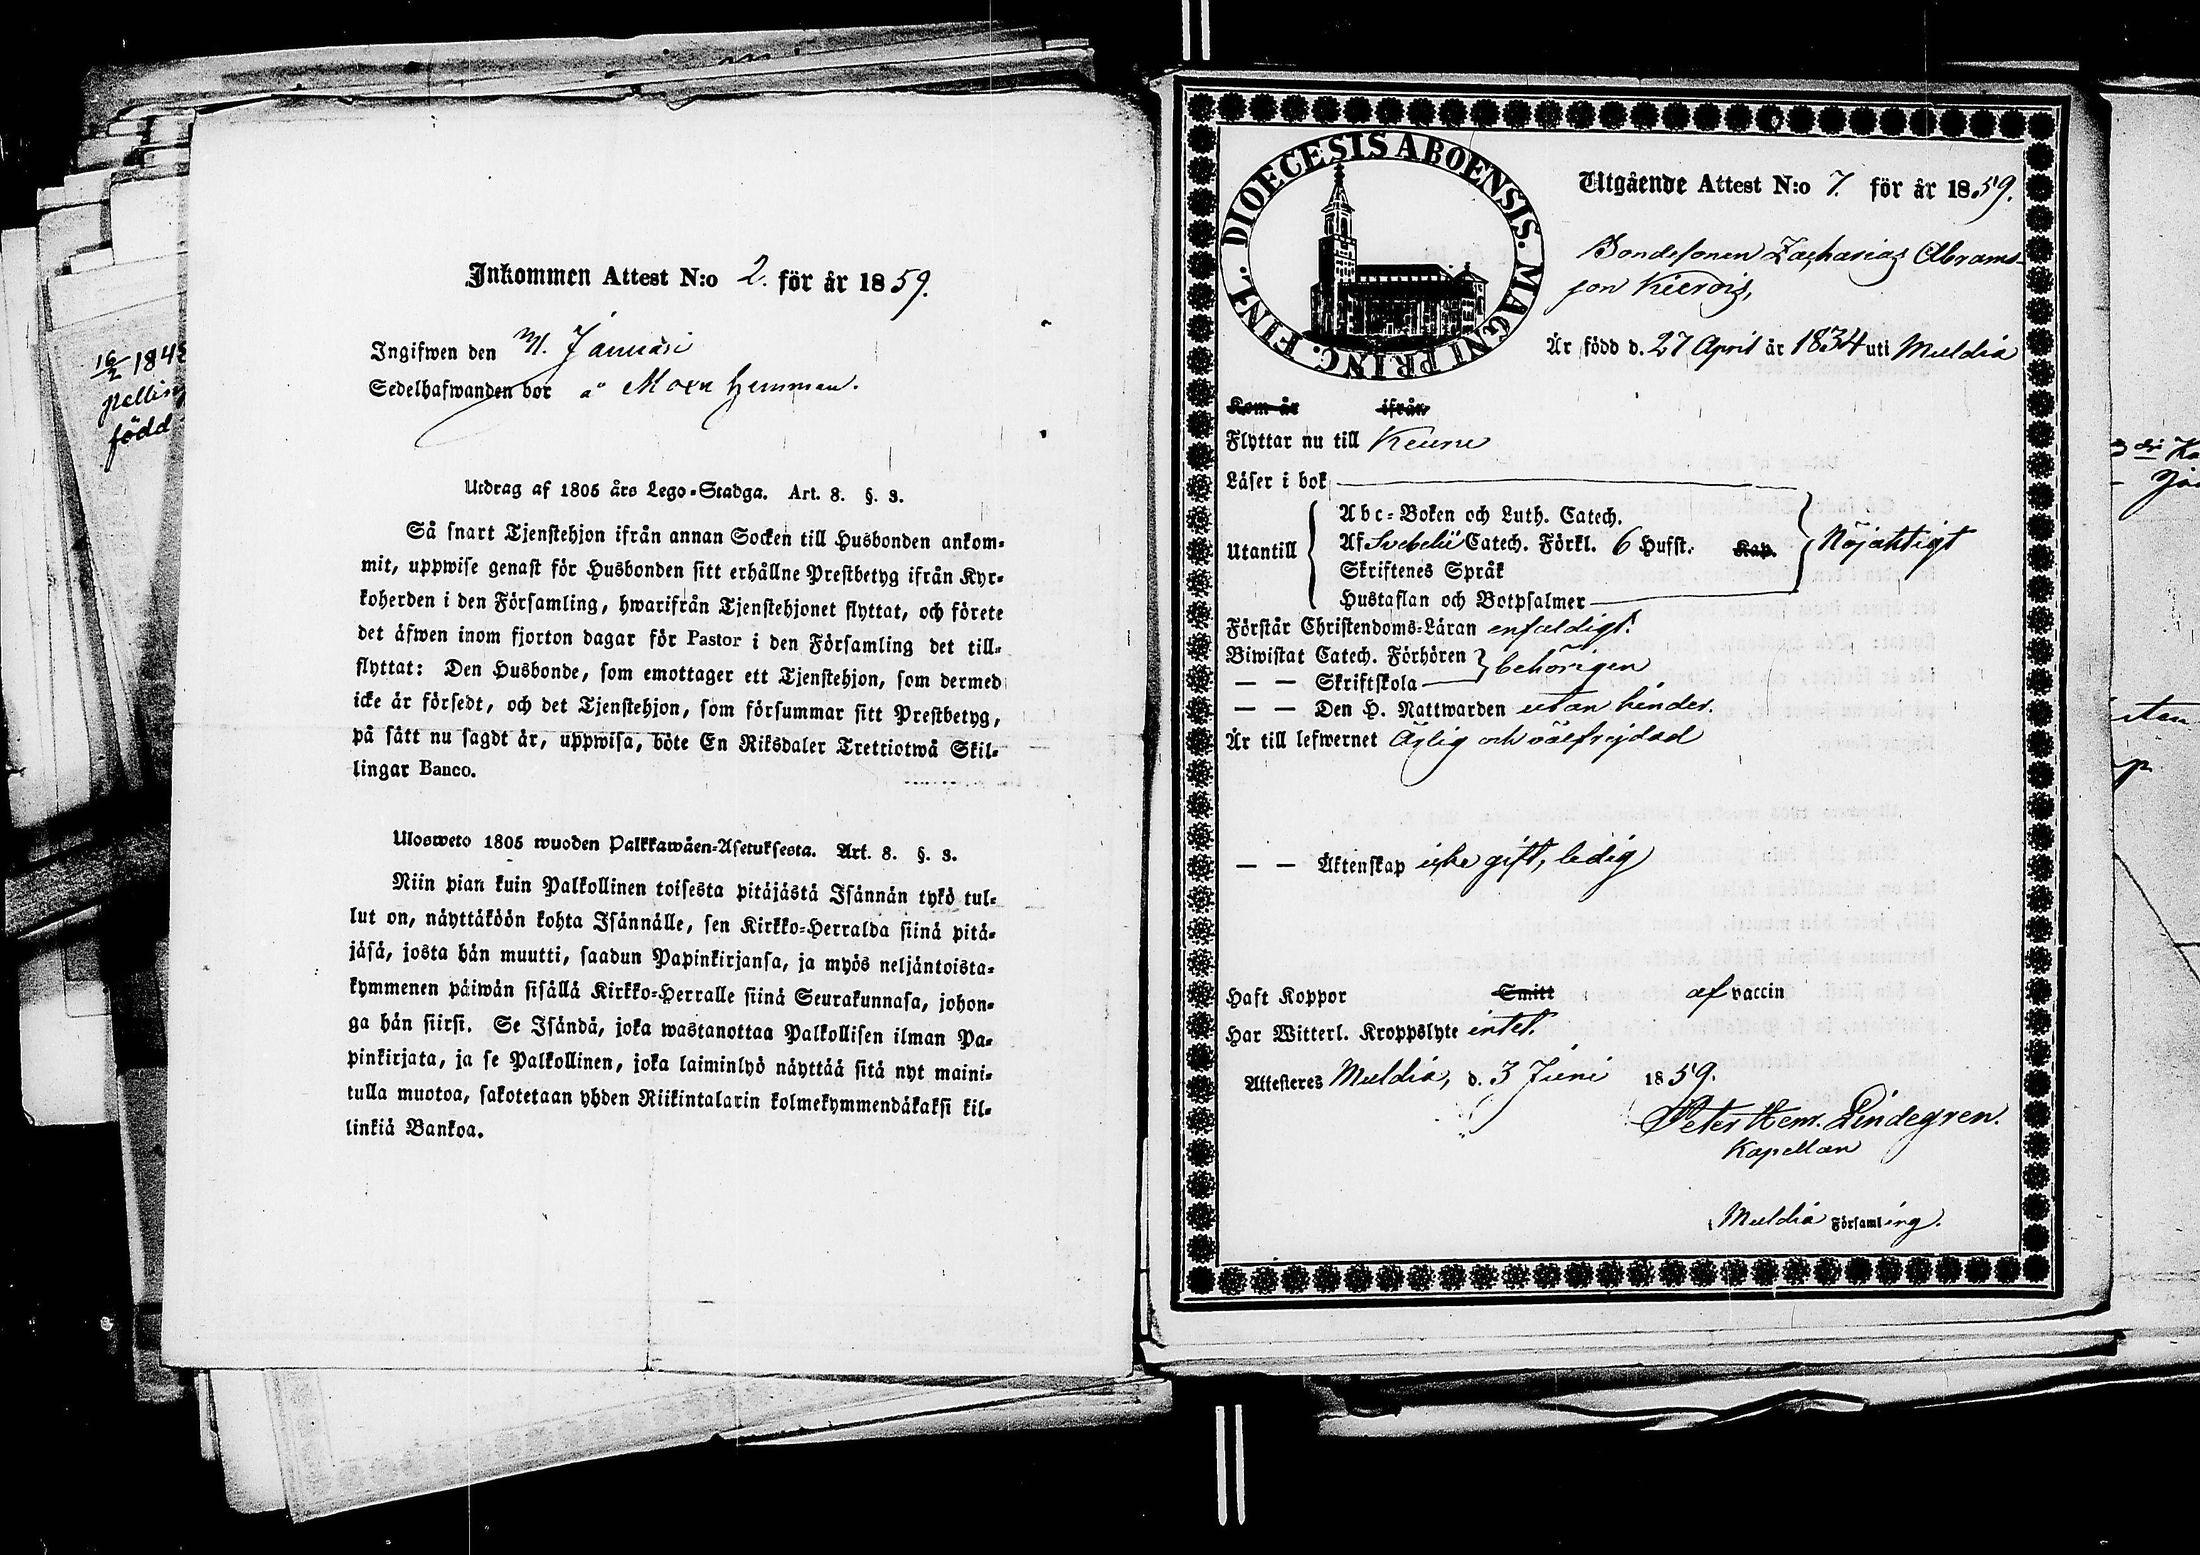 Inkommen Attest N:o 2. för år 1859.
Ingifwen den 31. Januari
Sedelhafwanden bor å Moxn hemman.
Utdrag af 1805 års Lego-Stadga. Art. 8. §. 3.
Så snart Tjenstehjon ifrån annan Socken till Husbonden ankom-
mit, uppwise genast för Husbonden sitt erhållne Prestbetyg ifrån Kyr-
koherden i den Församling, hwarifrån Tjenstehjonet flyttat, och förete
det äfwen inom fjorton dagar för Pastor i den Församling det till-
flyttat: Den Husbonde, som emottager ett Tjenstehjon, som dermed
icke är försedt, och det Tjenstehjon, som försummar sitt Prestbetyg,
på sätt nu sagdt är, uppwisa, böte En Riksdaler Trettiotwå Skil-
lingar Banco.
Ulosweto 1805 wuoden Palkkawäen-Asetuksesta. Art. 8. §. 3.
Niin pian kuin Palkollinen toisesta pitäjästä Isännän tykö tul-
lut on, näyttäköön kohta Isännälle, sen Kirkko-Herralda siinä pitä-
jäsä, josta hän muutti, saadun Papinkirjansa, ja myös neljäntoista-
kymmenen päiwän sisällä Kirkko-Herralle siinä Seurakunnasa, johon-
ga hän siirsi. Se Isändä, joka wastanottaa Palkollisen ilman Pa-
pinkirjata, ja se Palkollinen, joka laiminlyö näyttää sitä nyt maini-
tulla muotoa, sakotetaan yhden Riikintalarin kolmekymmendäkaksi kil-
linkiä Bankoa.
16/2 184
pelling
född
DIOECESIS ABOENSIS. MAGNI PRINC. FINL.
Utgående Attest N:o 7. för år 1859.
Bondesonen Zacharias Abrams-
son
Är född d. 27 April år 1834 uti Muldia
Kom år ifrån
Flyttar nu till Keuru
Läser i bok
Utantill
Abc-Boken och Luth. Catech.
Af Svebelii Catech. Förkl. 6 Hufst. Kap.
Skriftenes Språk
Hustaflan och Botpsalmer
Nöjaktigt
Förstår Christendoms-Läran enfaldigt.
Biwistat Catech. Förhören
— — Skriftskola
behörigen
— — Den H. Nattwarden utan hinder.
Är till lefwernet Ärlig och välfrejdad
— — Äktenskap icke gift, ledig
Haft Koppor Smitt af vaccin
Har Witterl. Kroppslyte intet.
Attesteres Muldia, d. 3 Juni 1859.
Peter Hem. Lindegren.
Kapellan
i Muldia Församling.